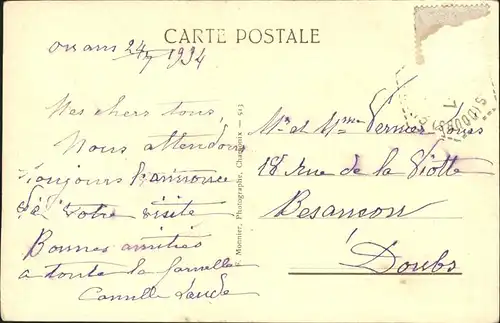 CARTE POSTALE
24/7 1934
Mes chers tous,
Nous attendons
toujours l'annonce
de votre visite
Bonnes amitiés
a toute la famille
Camille
F. Monnier, Photographe, Chamonix — 513
Mr et Mme Vernier Louis
18 rue de la Viotte
Besançon
Doubs